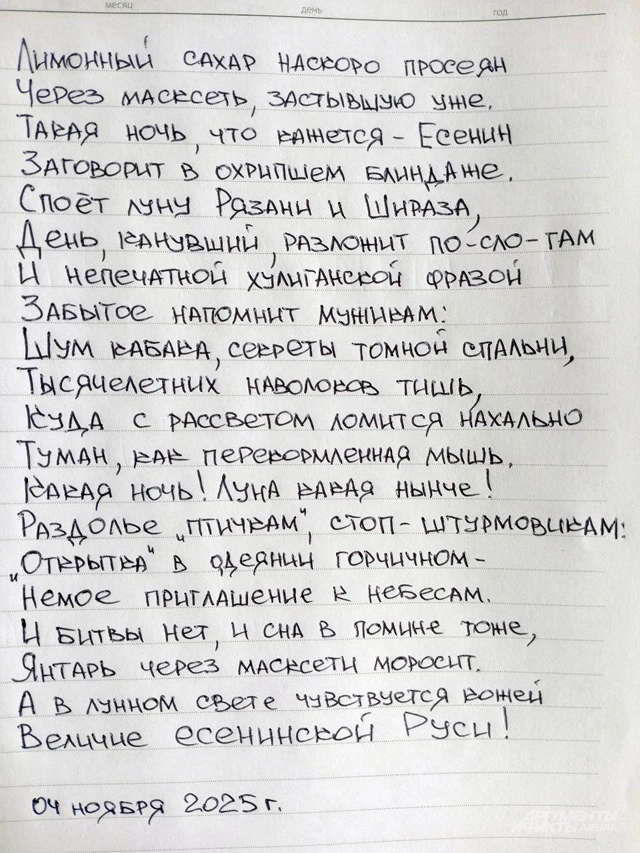 месяц день год
Лимонный сахар наскоро просеян
Через масксеть, застывшую уже.
Такая ночь, что кажется – Есенин
Заговорит в охрипшем блиндаже.
Споёт луну Рязани и Шираза,
День, канувший, разложит по-сло-гам
И непечатной хулиганской фразой
Забытое напомнит мужикам:
Шум кабака, секреты томной спальни,
Тысячелетних наволоков тишь,
Куда с рассветом ломится нахально
Туман, как перекормленная мышь.
Какая ночь! Луна какая нынче!
Раздолье „птичкам", стоп-штурмовикам:
„Открытка" в одеянии горчичном –
Немое приглашение к небесам.
И битвы нет, и сна в помине тоже,
Янтарь через масксети моросит.
А в лунном свете чувствуется кожей
Величие есенинской Руси!
04 ноября 2025 г.
АРГУМЕНТЫ
И ФАКТЫ AIF.RU